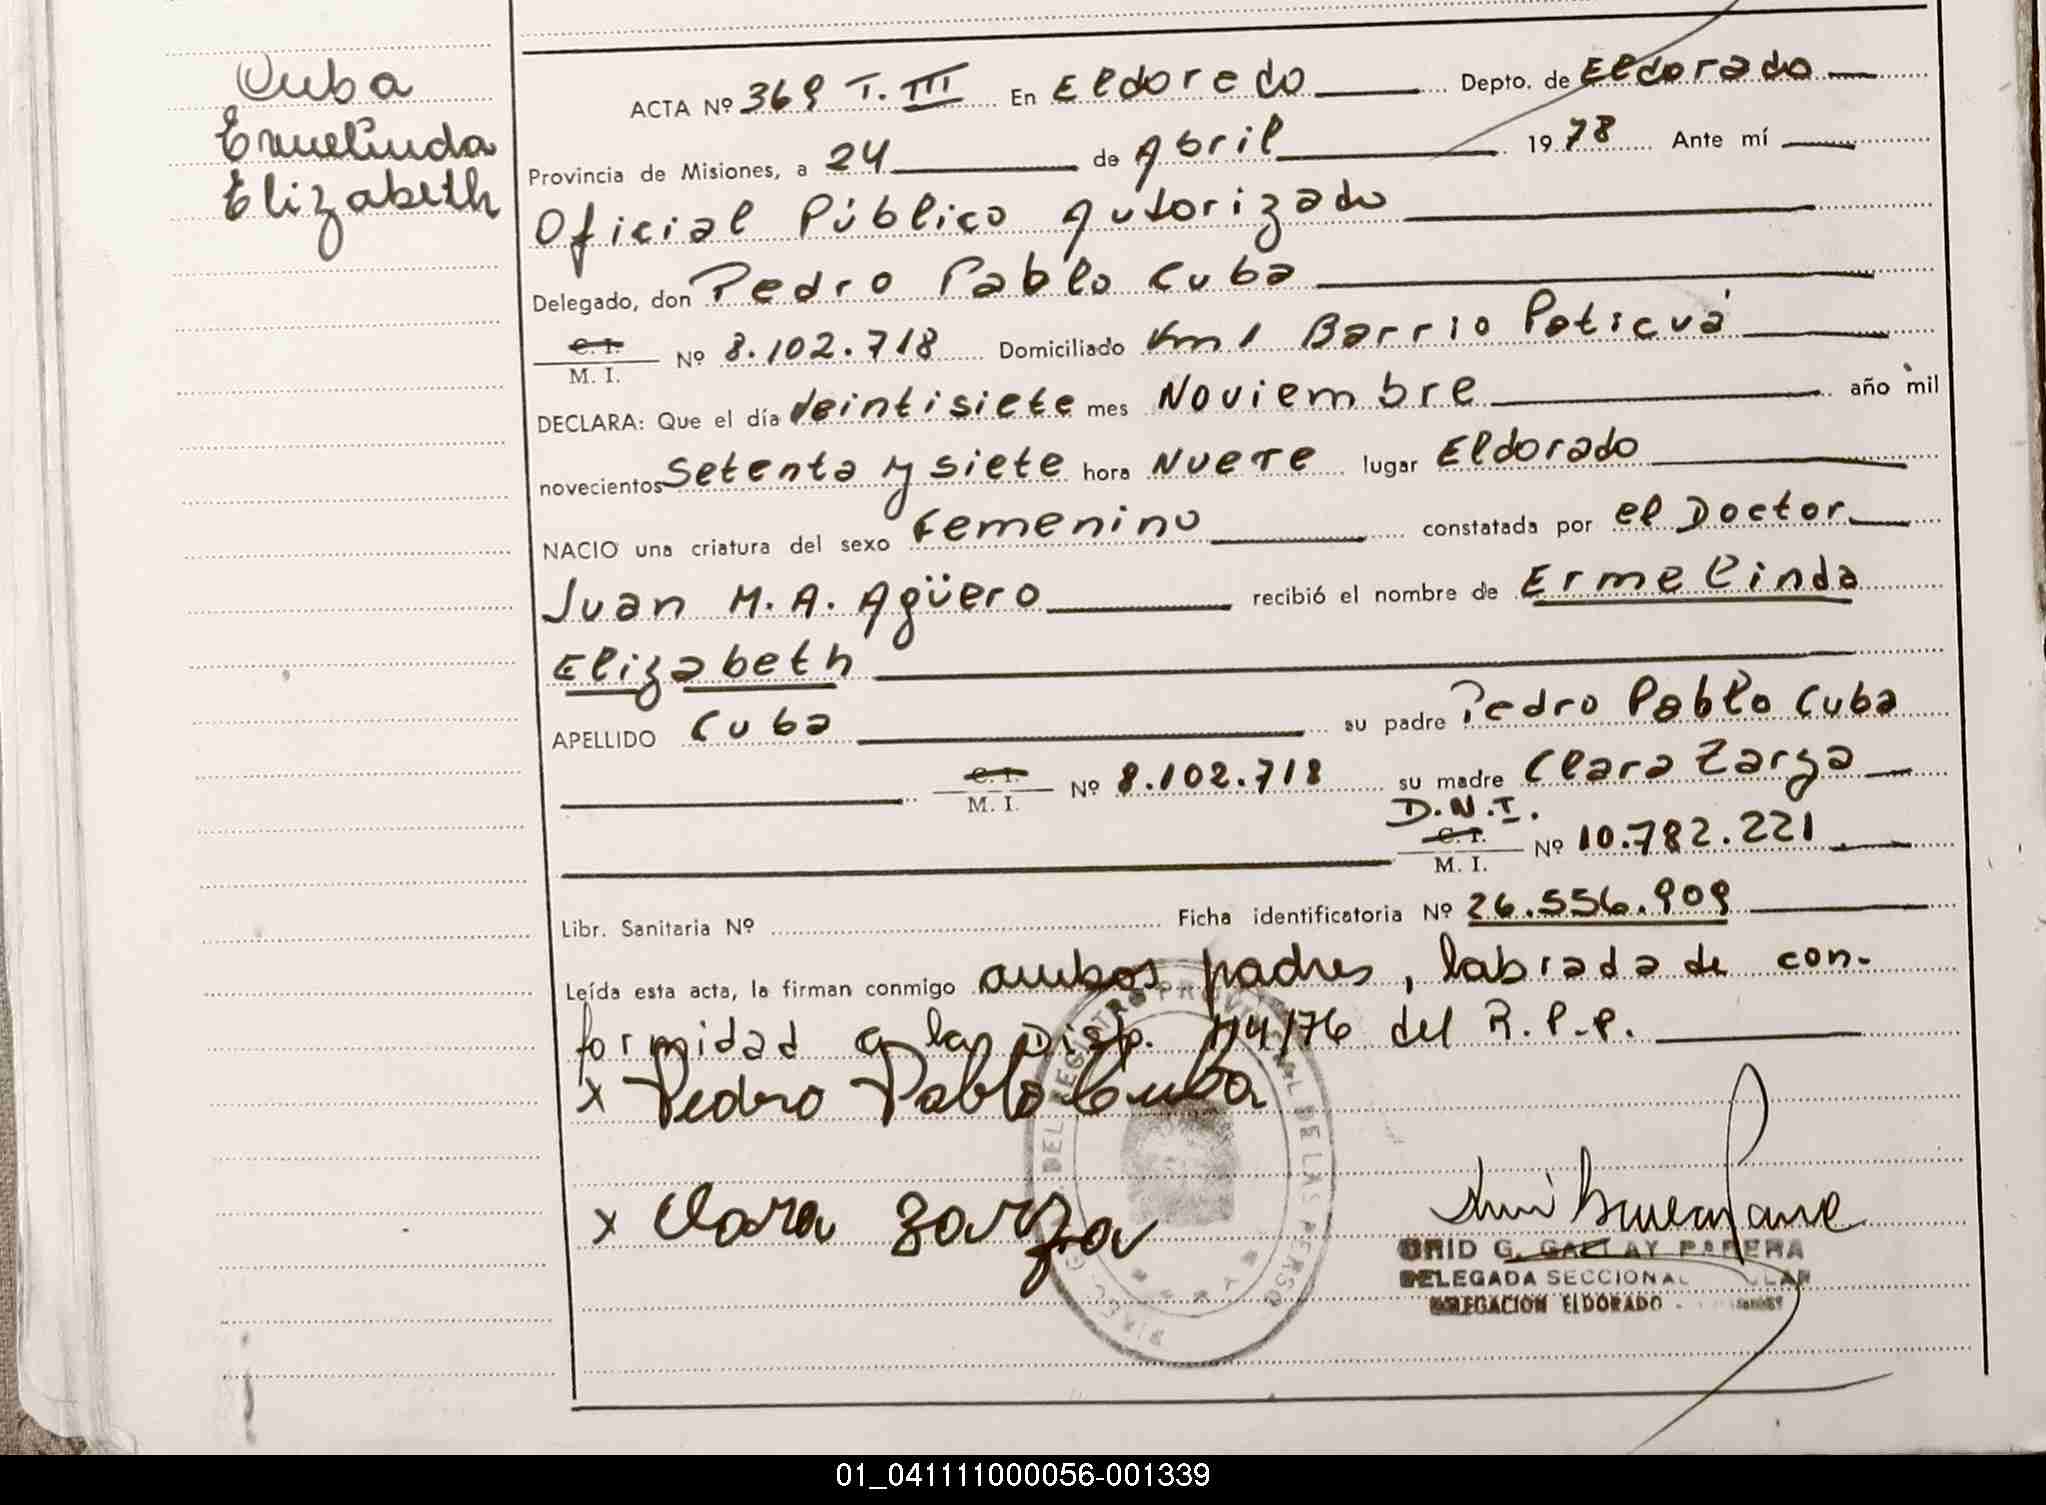 Cuba
Ermelinda
Elizabeth
ACTA Nº 369 T. III En Eldoredo Depto. de Eldorado
Provincia de Misiones, a 24 de Abril 1978 Ante mí
Oficial Público Autorizado
Delegado, don Pedro Pablo Cuba
C. I.
M. I. Nº 8.102.718 Domiciliado Km 1 Barrio Poticuá
DECLARA: Que el día Veintisiete mes Noviembre año mil
novecientos Setenta y siete hora Nueve lugar Eldorado
NACIO una criatura del sexo Femenino constatada por el Doctor
Juan M. A. Agüero recibió el nombre de Ermelinda
Elizabeth
APELLIDO Cuba su padre Pedro Pablo Cuba
C. I.
M. I. Nº 8.102.718 su madre Clara Zarza
D.N.I.
C. I.
M. I. Nº 10.782.221
Libr. Sanitaria Nº Ficha identificatoria Nº 26.556.909
Leída esta acta, la firman conmigo ambos padres, labrada de con-
formidad a la Disp. 114/76 del R.P.P.
x Pedro Pablo Cuba
x Clara Zarza
DELEGADA SECCIONAL
DELEGACION ELDORADO -
01_041111000056-001339